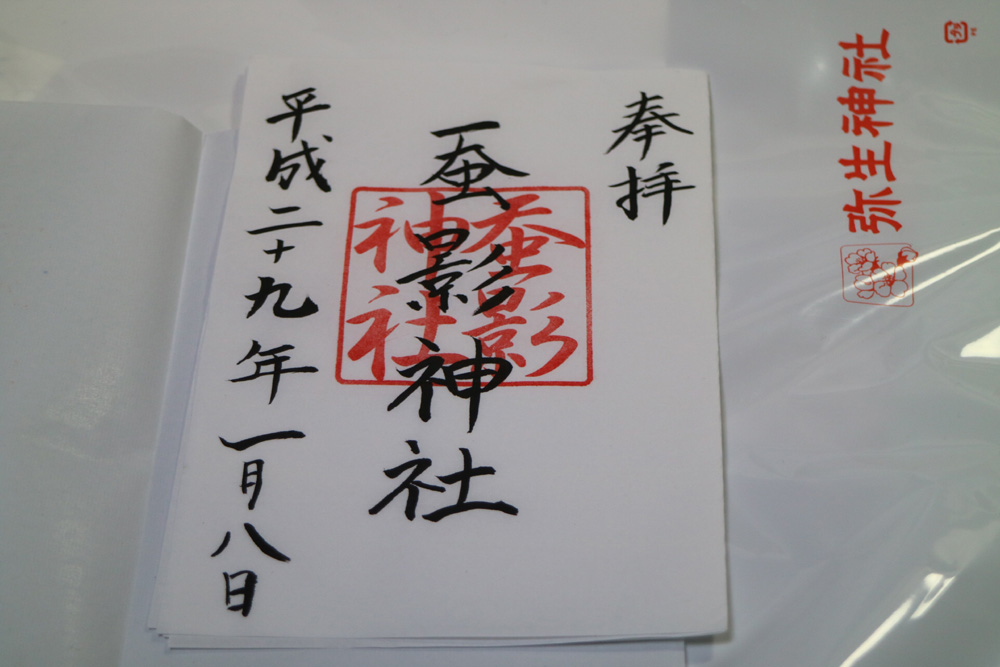 奉拝
蚕影神社
平成二十九年一月八日
蚕影
神社
弥生神社